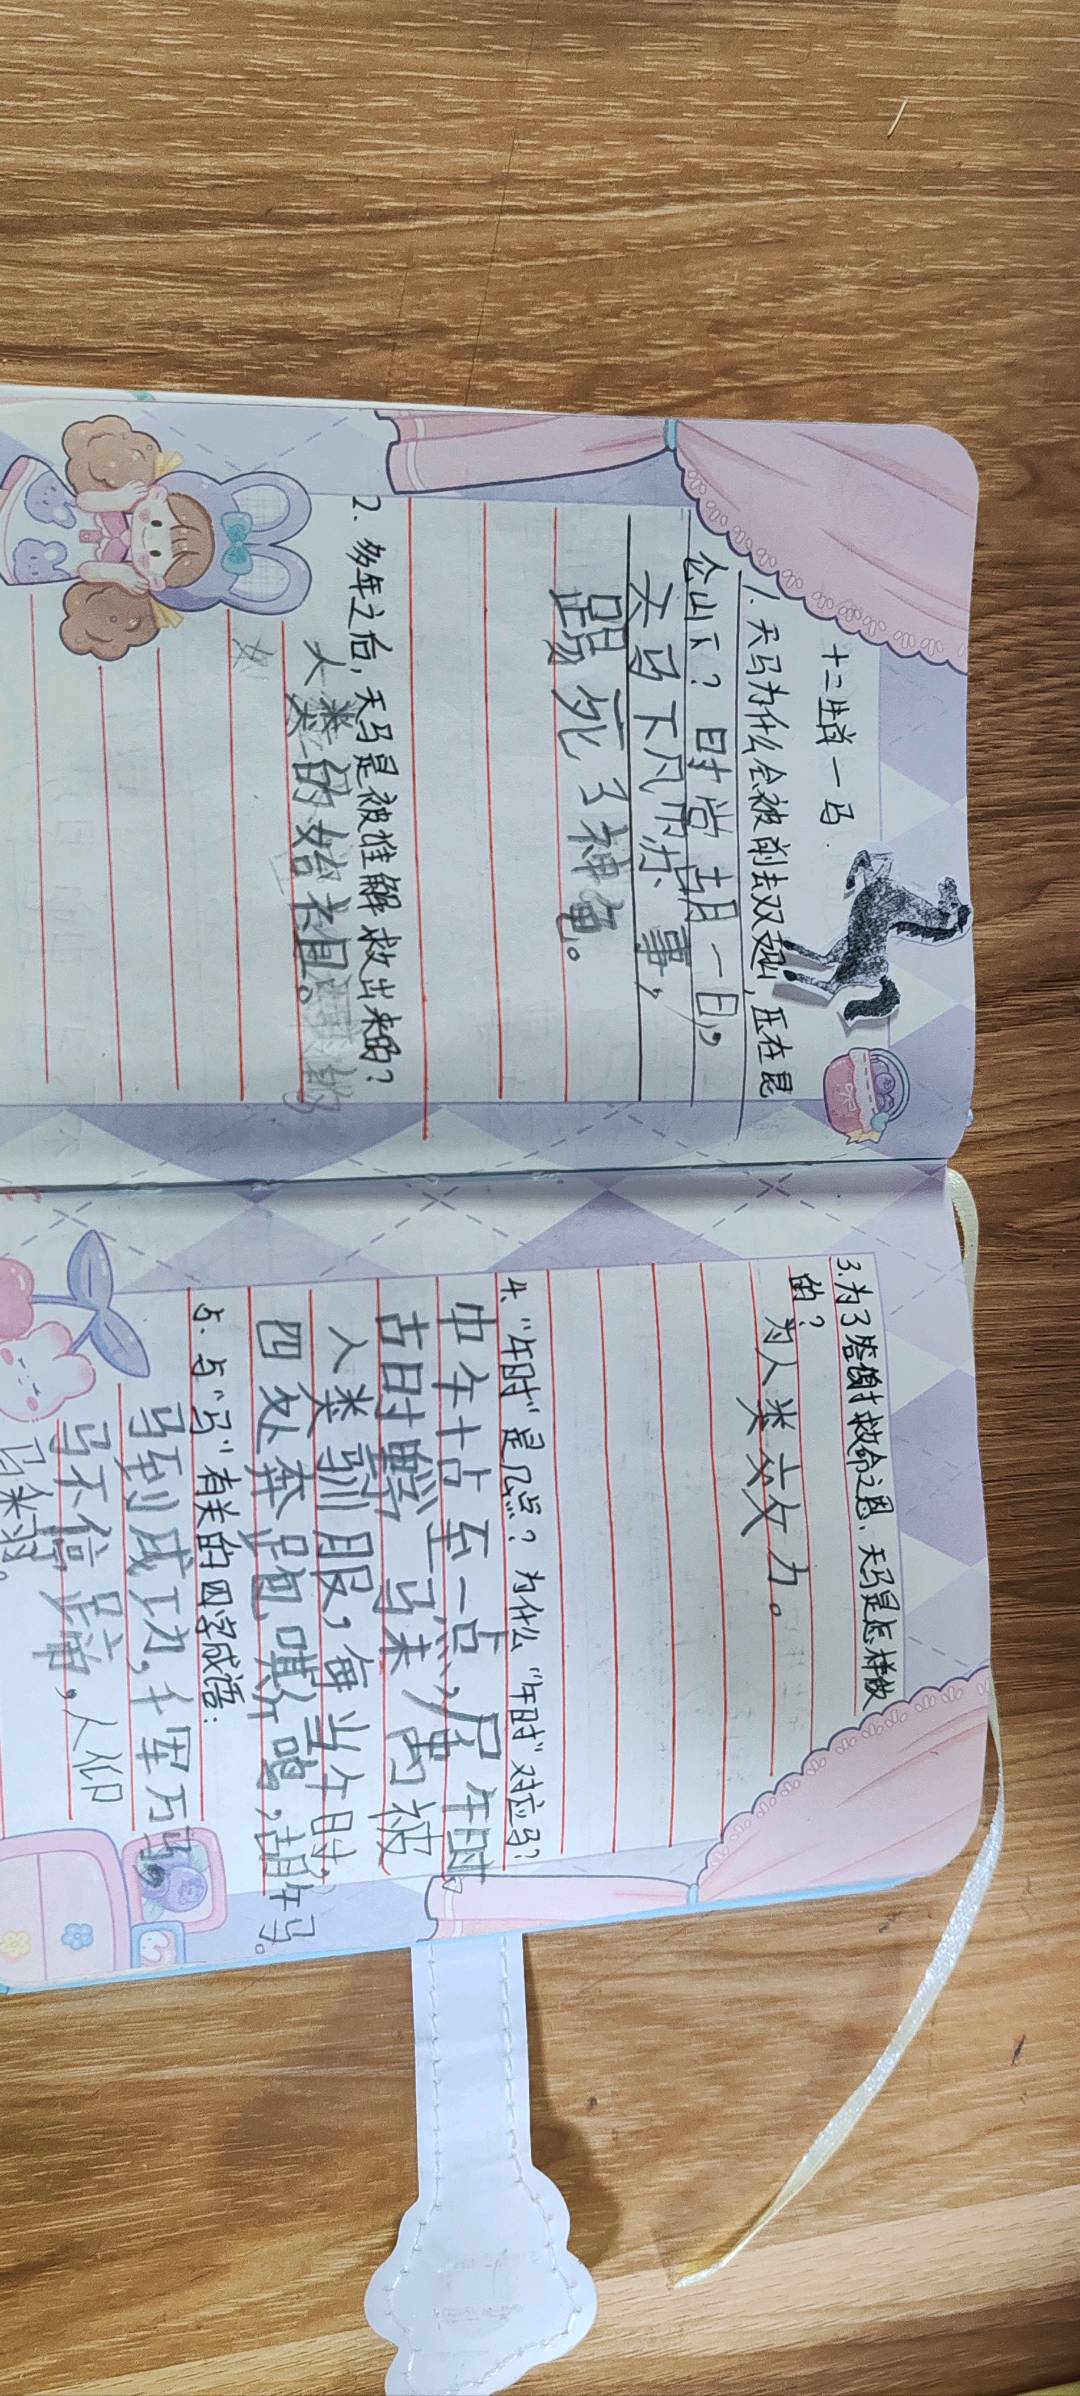 十二生肖—马
1. 天马为什么会被削去双翅，压在昆
仑山下？时常胡一日，
天马下凡闹事，
踢死了神龟。
2. 多年之后，天马是被谁解救出来的？
人类的始祖。
3. 为了答谢救命之恩、天马是怎样做
的？
为人类效力。
4. "午时"是几点？为什么"午时"对应马？
中午十点至一点，属午时。
古时野马未被
人类驯服，每当午时，
四处奔跑嘶鸣，
5. 与"马"有关的四字成语：
马到成功，千军万马，
马不停蹄，人仰